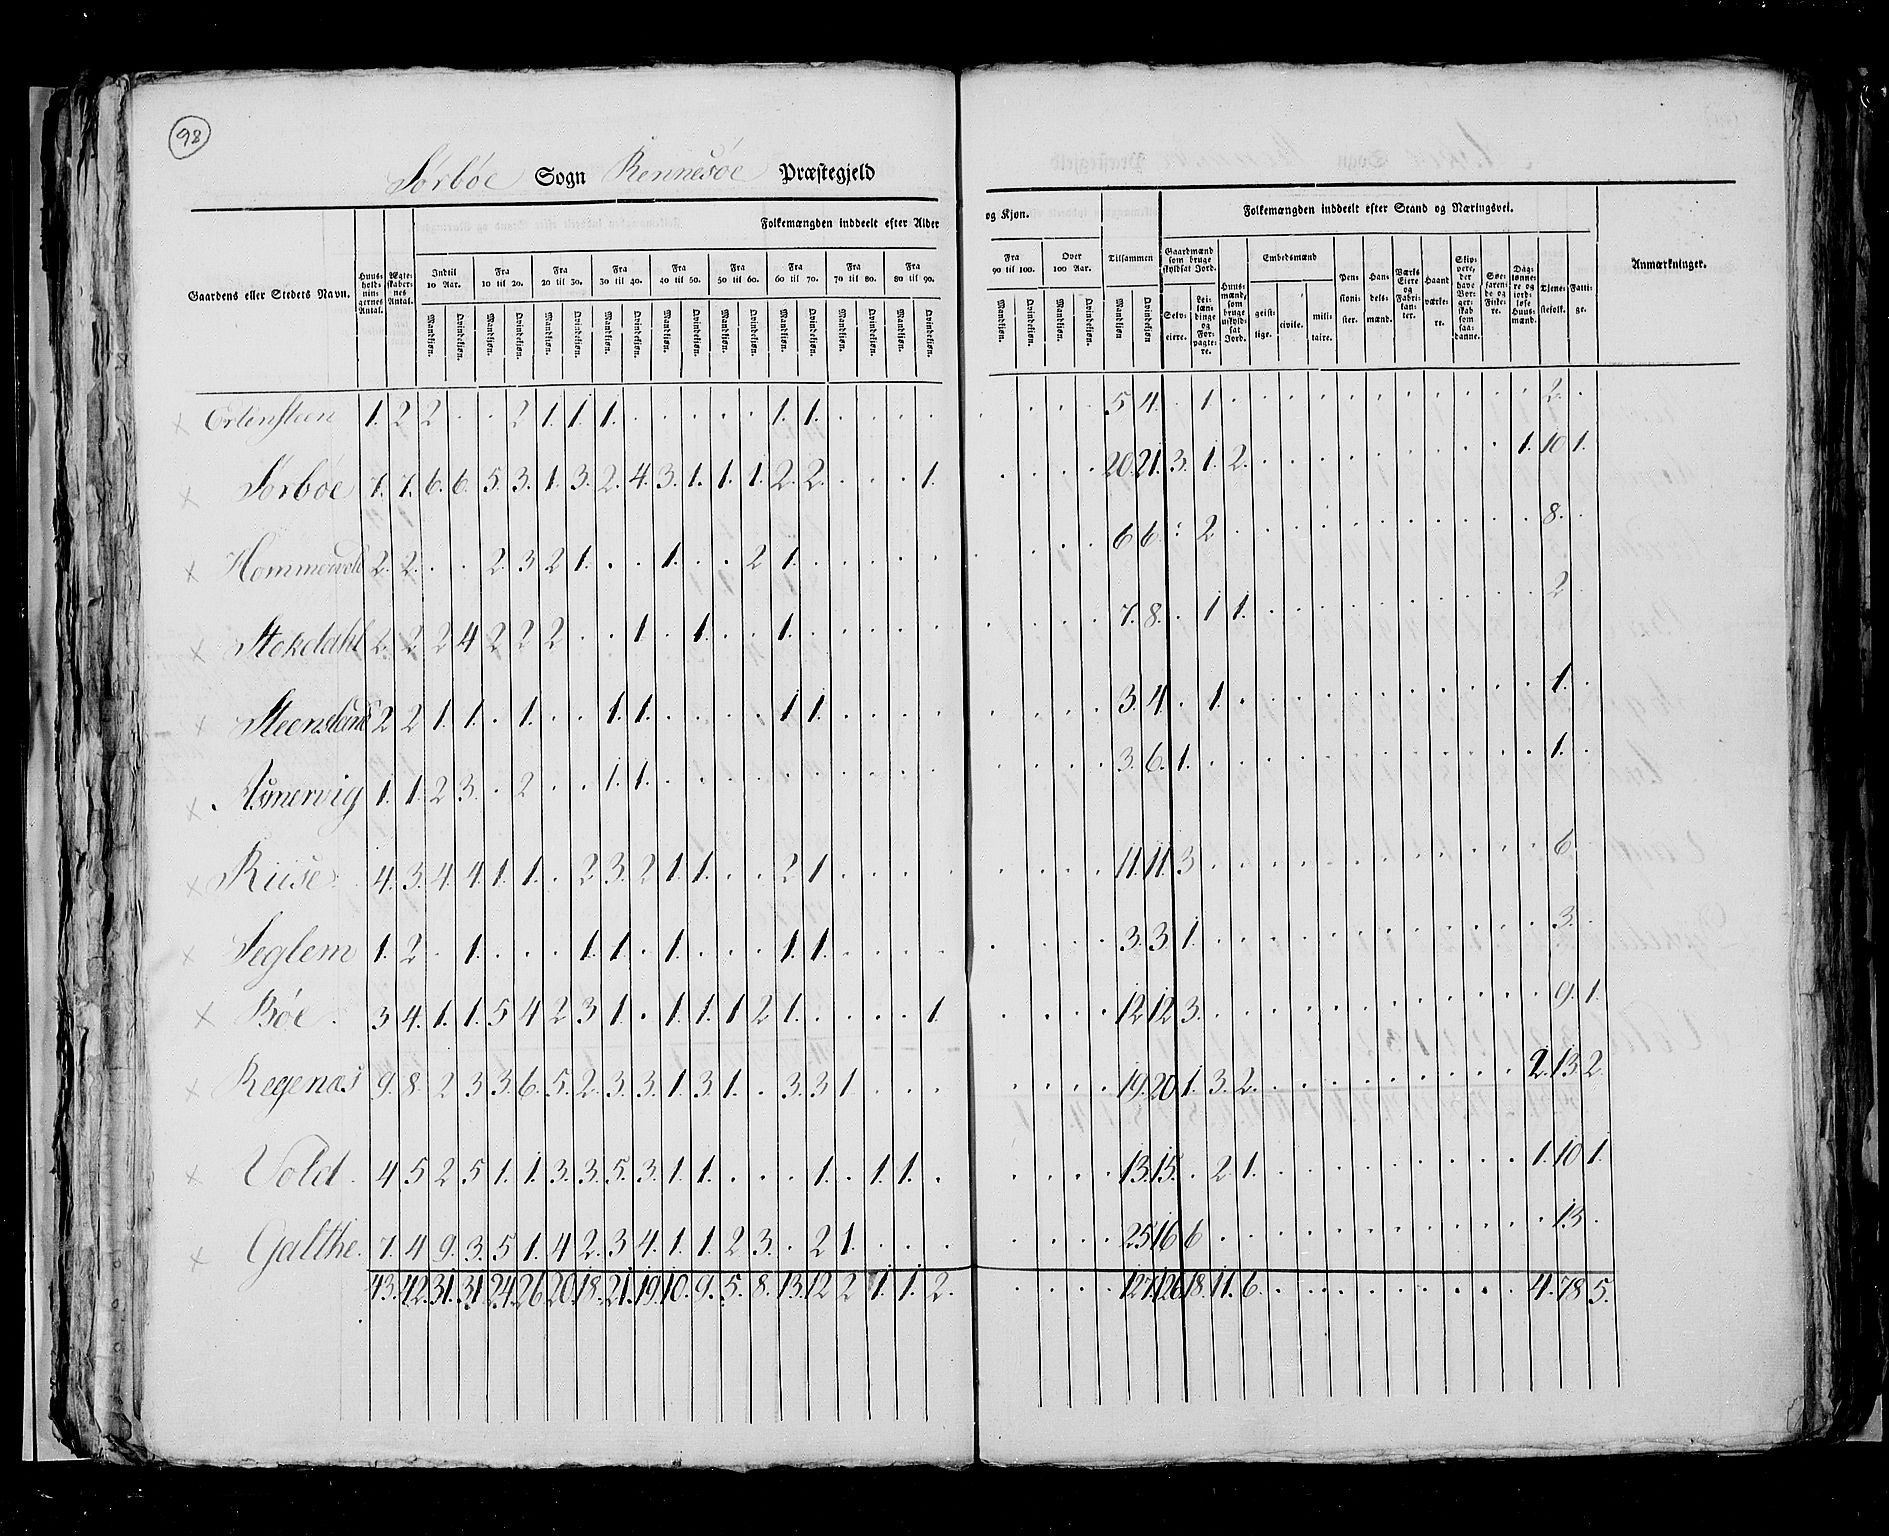 98
Sørbøe Sogn Rennesøe Præstegjeld
Gaardens eller Stedets Navn. Huus-holdnin-gernes Antal. Ægte-skaber-nes Antal. Folkemængden inddeelt efter Alder og Kjøn. Tilsammen Folkemængden inddeelt efter Stand og Næringsvei. Anmærkninger.
Indtil 10 Aar. Fra 10 til 20. Fra 20 til 30. Fra 30 til 40. Fra 40 til 50. Fra 50 til 60. Fra 60 til 70. Fra 70 til 80. Fra 80 til 90. Fra 90 til 100. Over 100 Aar.
Mandkiøn. Qvindekiøn. Mandkiøn. Qvindekiøn. Mandkiøn. Qvindekiøn. Mandkiøn. Qvindekiøn. Mandkiøn. Qvindekiøn. Mandkiøn. Qvindekiøn. Mandkiøn. Qvindekiøn. Mandkiøn. Qvindekiøn. Mandkiøn. Qvindekiøn. Mandkiøn. Qvindekiøn. Mandkiøn. Qvindekiøn. Mandkiøn Qvindekiøn
Gaardmænd som bruge skyldsat Jord. Selv-eiere. Lei-læn-dinge og For-pagte-re. Huus-mænd, som bruge uskyld-sat Jord. Embedsmænd geist-lige. civile. mili-taire. Pen-sioni-ster. Han-dels-mænd. Værks Eiere og Fabri-kan-ter. Haand værke-re. Skip-pere, der have Bor-ger-skab som saa-danne. Søe-faren-de og Fiske-re. Dag-lønne-re og jord-løse Huus-mænd. Tjene-stefolk. Fatti-ge.
1. 2 2 . . 2 1. 1. 1. . . . . . 1. 1. . . . . . . . . 5 4. . 1 . . . . . . . . . . . 2. .
Sørbøe 7. 7. 6. 6. 5. 3. 1. 3. 2. 4. 3. 1. 1. 1. 2. 2. . . . 1. . . . . 20. 21. 3. 1. 2. . . . . . . . . . 1. 10 1.
2. 2. . . 2 3 2 1. . . 1. . . 2 1. . . . . . . . . . 6 6. . 2 . . . . . . . . . . . 8. .
Stokdahl 2. 2 2 4 2 2 2 . . 1 . 1. . . 1. . . . . . . . . . 7. 8. . 1 1. . . . . . . . . . . 2 .
2 2 1. 1. . 1. . . 1. 1. . . . . 1 1. . . . . . . . . 3. 4. . 1. . . . . . . . . . . . 1. .
Asmervig 1. 1. 2 3. . 2 . . 1. 1. . . . . . . . . . . . . . . 3. 6. 1. . . . . . . . . . . . . 1. .
Riise 4. 3. 4. 4. 1 1. . 2 3. 2 1 1. . . 2 1 . . . . . . . . 11. 11. 3 . . . . . . . . . . . . 6. .
Seglem 1. 2 . 1. . . . 1. 1. . 1. . . . 1. 1. . . . . . . . . 3. 3. 1. . . . . . . . . . . . . 3. .
Bøe . 3 4. 1. 1. 5 4 2 3 1. . 1. 1. 1 2 1. . . . . 1. . . . . 12 12 3. . . . . . . . . . . . . 9. 1.
Regenæs 9. 8 2 3 3. 6. 5. 2. 3. 3. 1. 3. 1. . 3. 3 1 . . . . . . . 19. 20 1. 3. 2. . . . . . . . . . 2. 13. 2
Vold . 4. 5 2 5 1. 1. 3. 3. 5. 3. 1 1. . . . 1. . 1. 1. . . . . . 13. 15. . 2 1. . . . . . . . . . 1. 10 1.
Galthe . 7. 4 9. 3. 5 1. 4 2. 3 4. 1. 1. 2 3. . 2 1. . . . . . . . 25 16 6 . . . . . . . . . . . . 13 .
43. 42. 31. 31 24. 26 20. 18. 21. 19. 10. 9. 5. 8. 13. 12 2 1. 1. 2. . . . . 127. 126. 18. 11. 6. . . . . . . . . . 4. 78 5.